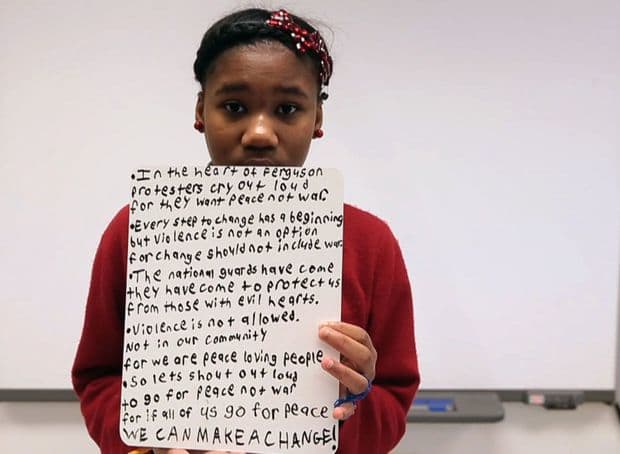 •In the heart of Ferguson
protesters cry out loud
for they want peace not war
•Every step to change has a beginning
but violence is not an option
for change should not include war
•The national guards have come
they have come to protect us
from those with evil hearts.
•Violence is not allowed.
Not in our community
for we are peace loving people
•So lets shout out loud
to go for peace not war
for if all of us go for peace
WE CAN MAKE A CHANGE!